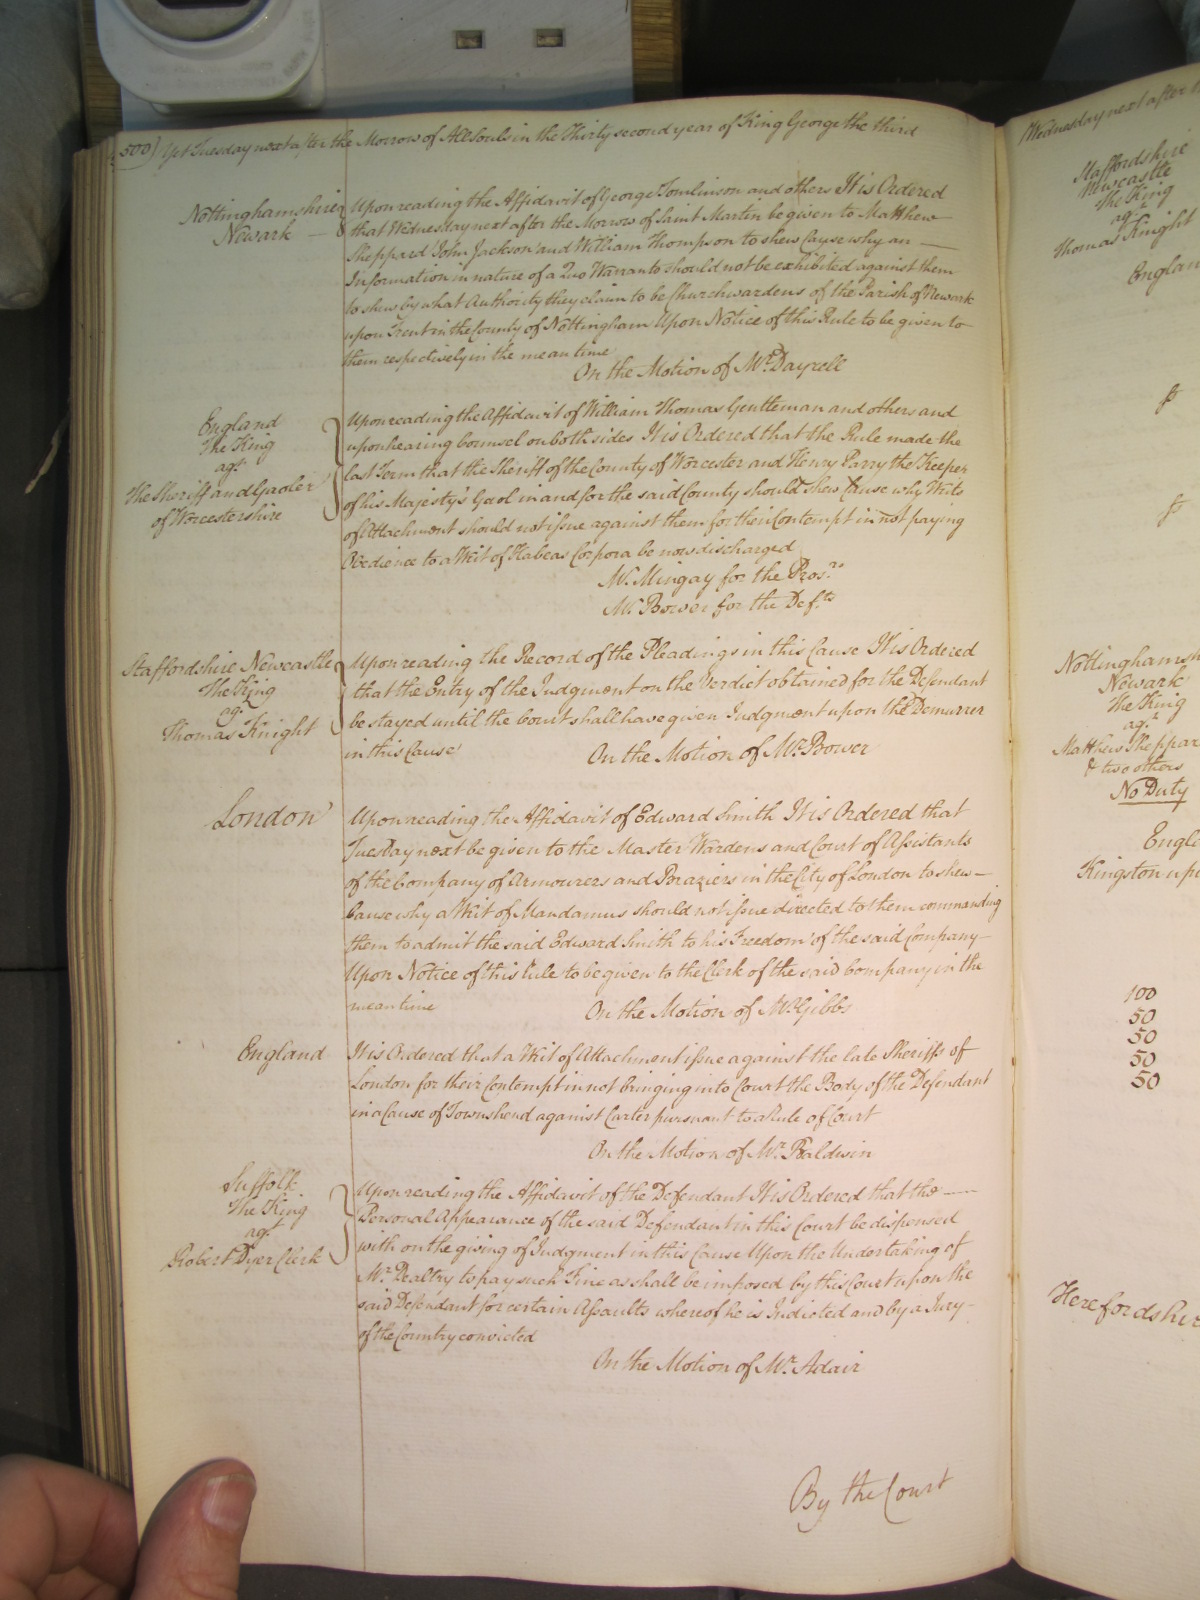 500) Yet Tuesday next after the Morrow of All Souls in the Thirty second year of King George the third
Nottinghamshire
Newark
Upon reading the Affidavit of George Tomlinson and others It is Ordered
that Wednesday next after the Morrow of Saint Martin be given to Matthew
Sheppard John Jackson and William Thompson to shew Cause why an
Information in nature of a Quo Warranto should not be exhibited against them
to shew by what Authority they claim to be Churchwardens of the Parish of Newark
upon Trent in the County of Nottingham Upon Notice of this Rule to be given to
them respectively in the mean time
On the Motion of Mr. Dayrell
England
The King
agt.
The Sheriff and Gaoler
of Worcestershire
Upon reading the Affidavit of William Thomas Gentleman and others and
upon hearing Counsel on both sides It is Ordered that the Rule made the
last Term that the Sheriff of the County of Worcester and Henry Parry the Keeper
of his Majesty's Gaol in and for the said County should shew Cause why Writs
of Attachment should not issue against them for their Contempt in not paying
Obedience to a Writ of Habeas Corpora be now discharged
Mr. Mingay for the Pros.rs
Mr. Bower for the Def.ts
Staffordshire Newcastle
The King
agt.
Thomas Knight
Upon reading the Record of the Pleadings in this Cause It is Ordered
that the Entry of the Judgment on the Verdict obtained for the Defendant
be stayed until the Court shall have given Judgment upon the Demurrer
in this Cause
On the Motion of Mr. Bower
London
Upon reading the Affidavit of Edward Smith It is Ordered that
Tuesday next be given to the Master Wardens and Court of Assistants
of the Company of Armourers and Braziers in the City of London to shew
Cause why a Writ of Mandamus should not issue directed to them commanding
them to admit the said Edward Smith to his Freedom of the said Company
Upon Notice of this Rule to be given to the Clerk of the said Company in the
mean time
On the Motion of Mr. Gibbs
England
It is Ordered that a Writ of Attachment issue against the late Sheriffs of
London for their Contempt in not bringing into Court the Body of the Defendant
in a Cause of Townshend against Carter pursuant to a Rule of Court
On the Motion of Mr. Baldwin
Suffolk
The King
agt.
Robert Dyer Clerk
Upon reading the Affidavit of the Defendant It is Ordered that the
Personal Appearance of the said Defendant in this Court be dispensed
with on the giving of Judgment in this Cause Upon the Undertaking of
Mr. Dealtry to pay such Fine as shall be imposed by this Court upon the
said Defendant for certain Assaults whereof he is Indicted and by a Jury
of the Country convicted
On the Motion of Mr. Adair
By the Court
Wednesday next after
Staffordshire
Newcastle
The King
agt.
Thomas Knight
Nottinghamsh
Newark
The King
agt.
Matthew Sheppar
& two others
No Duty
Kingston upo
100
50
50
50
50
Herefordshir